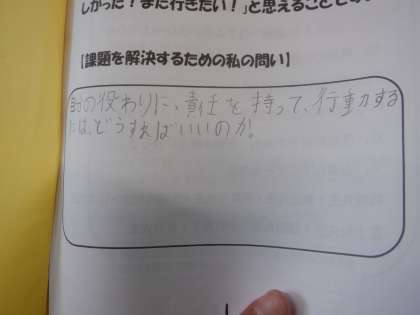 しかった！また行きたい！」と思えること
【課題を解決するための私の問い】
自分の役わりに、責任を持って、行動する
には、どうすればいいのか。